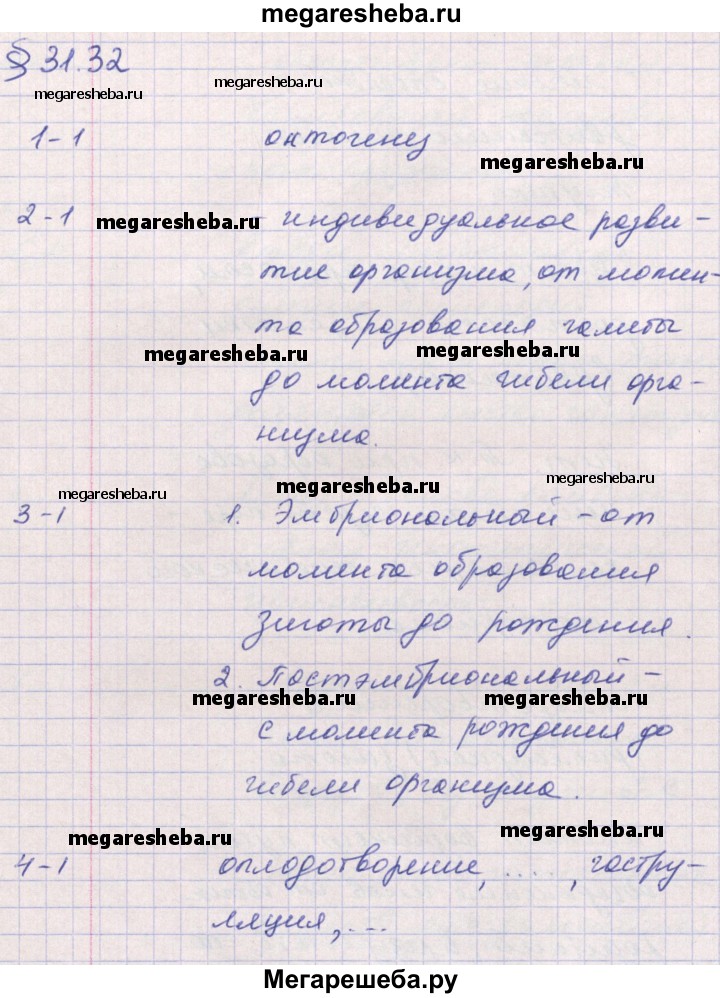 megaresheba.ru
§ 31.32
megaresheba.ru megaresheba.ru
1-1 онтогенез
megaresheba.ru
2-1 megaresheba.ru - индивидуальное разви-
тие организма, от момен-
та образования гаметы
megaresheba.ru megaresheba.ru
до момента гибели орга-
низма.
megaresheba.ru megaresheba.ru megaresheba.ru
3-1 1. Эмбриональный - от
момента образования
зиготы до рождения.
2. Постэмбриональный -
megaresheba.ru megaresheba.ru
с момента рождения до
гибели организма.
megaresheba.ru megaresheba.ru
4-1 оплодотворение, ...., гастру-
ляция, ...
Мегарешеба.ру